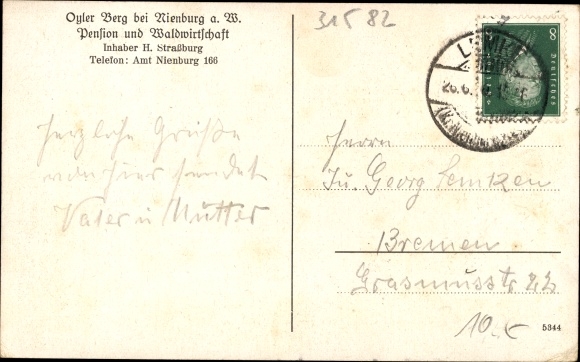 Oyler Berg bei Nienburg a. W.
Pension und Waldwirtschaft
Inhaber H. Straßburg
Telefon: Amt Nienburg 166
31582
8
Deutsches
26.6.
herzliche Grüße
von hier sendet
Vater u Mutter
Herrn
Georg Lemken
Bremen
Grasmusstr 22
10
5344